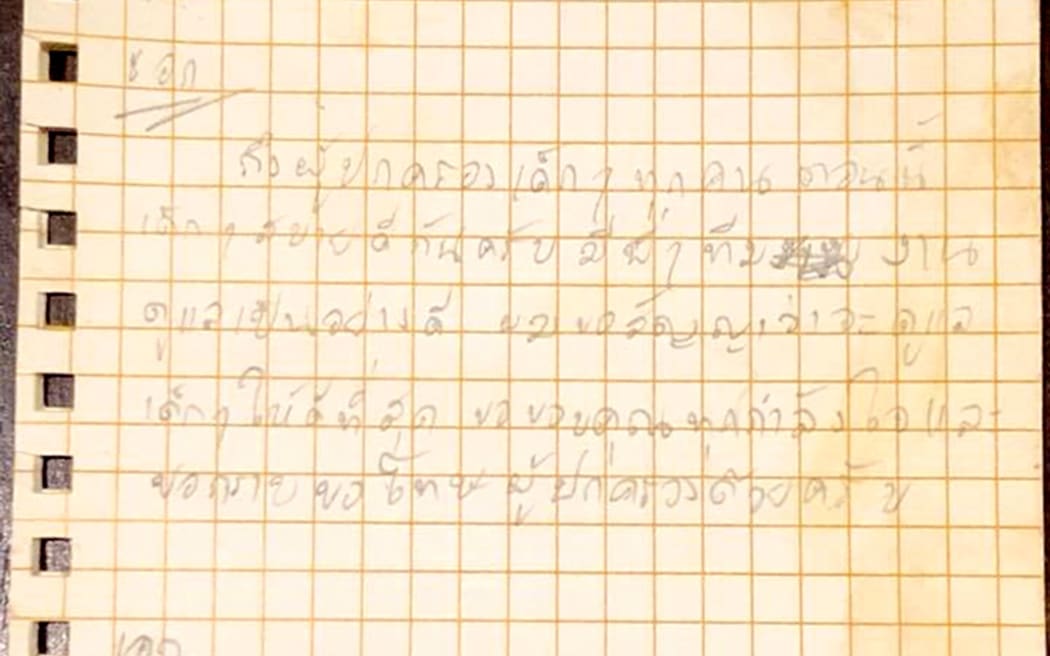 ถึงผู้ปกครองเด็กๆทุกคน ตอนนี้
เด็กๆสบายดีกันครับ มีพี่ๆทีมงาน
ดูแลเป็นอย่างดี ผมขอสัญญาว่าจะดูแล
เด็กๆให้ดีที่สุด ขอขอบคุณทุกกำลังใจและ
ขอกราบขอโทษผู้ปกครองด้วยครับ